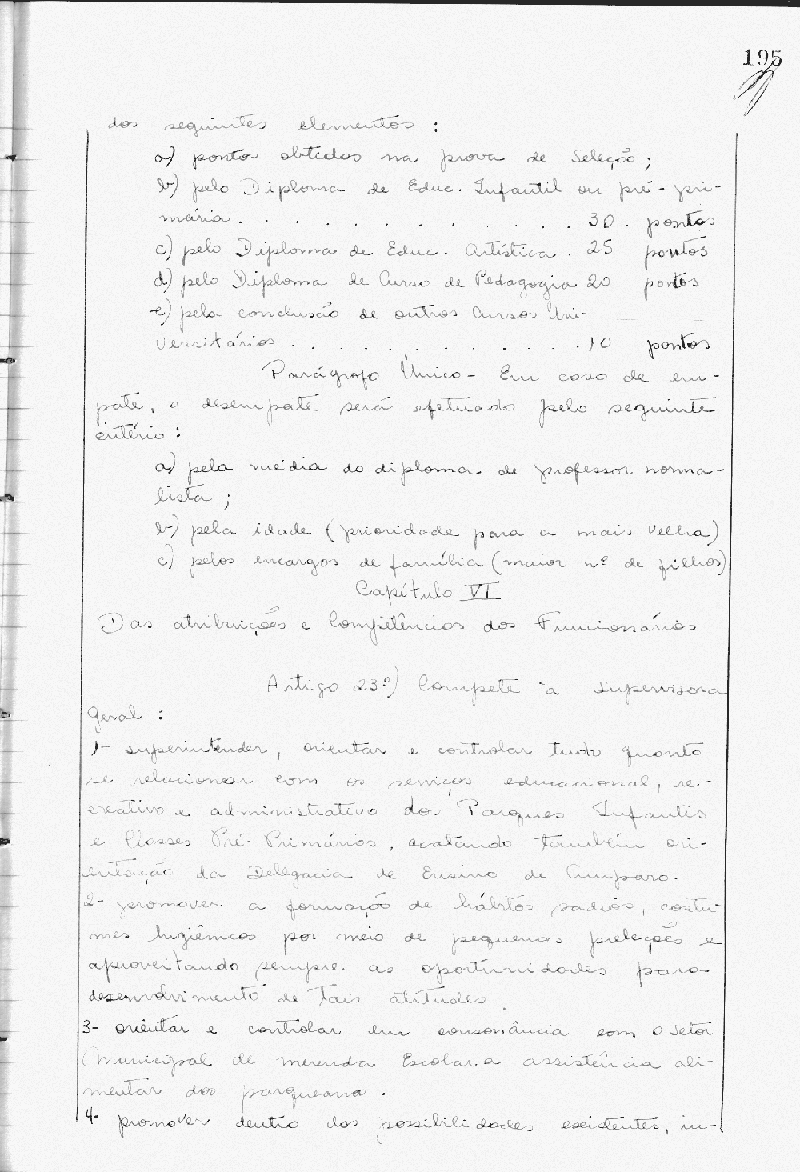 195
dos seguintes elementos :
a) pontos obtidos na prova de Seleção ;
b) pelo Diploma de Educ. Infantil ou pré-pri-
mária . . . . . . . . . . . . 30 . pontos
c) pelo Diploma de Educ. Artística . 25 pontos
d) pelo Diploma de Curso de Pedagogia 20 pontos
e) pela conclusão de outros Cursos Uni-
versitários . . . . . . . . . . . 10 pontos
Parágrafo Único - Em caso de em-
pate, o desempate será efetuado pelo seguinte
critério :
a) pela média do diploma de professor norma-
lista ;
b) pela idade (prioridade para a mais velha)
c) pelos encargos de família (maior nº de filhos)
Capítulo VI
Das atribuições e Competências dos Funcionários
Artigo 23º) Compete a Supervisora
Geral :
1- superintender, orientar e controlar tudo quanto
se relacionar com os serviços educacional, re-
creativo e administrativo dos Parques Infantis
e Classes Pré-Primárias, acatando também ori-
entação da Delegacia de Ensino de Amparo.
2- promover a formação de hábitos sadios, costu-
mes higiênicos por meio de pequenas preleções e
aproveitando sempre as oportunidades para
desenvolvimento de tais atitudes.
3- orientar e controlar em consonância com o Setor
Municipal de merenda Escolar a assistência ali-
mentar dos parqueano .
4- promover dentro das possibilidades existentes, in-